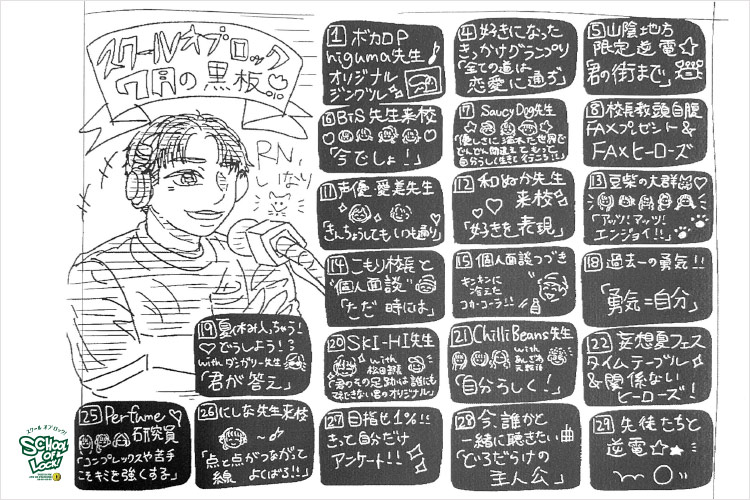 スクールオブロック
7月の黒板
RN.
しいなり
1 ボカロP
niguma先生
オリジナル
ジングル
4 好きになった
きっかけグランプリ
「全ての道は
恋愛に通ず」
5 山陰地方
限定逆電☆
君の街まで
6 BiS先生来校
「今でしょ！」
7 Saucy Dog先生
「優しさに満ちた世界で
どんどん間違えてもって
自分らしく生きて行こう！」
8 校長教頭自腹
FAXプレゼント＆
FAXヒーローズ
11 声優・愛美先生
「きんちょうしてもいつも通り」
12 和ぬか先生
来校
「好きを表現」
13 豆柴の大群
「アッツ！アッツ！
エンジョイ！！」
14 こもり校長と
"個人面談"
「ただ時には」
15 個人面談つづき
キンキンに
冷えた
コカ・コーラ！！
18 過去一の勇気！！
「勇気＝自分」
19 夏休み入っちゃう！
♡どうしよう！？
with ダンガリー先生
「君が答え」
20 SKY-HI先生
with
松田部長
「君のその足跡は誰にも
マネできない男のオリジナル」
21 Chilli Beans.先生
with
「自分らしく！」
22 妄想夏フェス
タイムテーブル
＆関係ない
ヒーローズ！
25 Perfume♡
研究員
「コンプレックスや苦手
こそキミを強くする」
26 にしな先生来校
「点と点がつながって
線 よくばる！！」
27 目指せ1％！！
きっと自分だけ
アンケート！！
28 今、誰かと
一緒に聴きたい曲
「どろだらけの
主人公」
29 生徒たちと
逆電☆★
スクール オブ ロック!
SCHOOL
OF
LOCK!